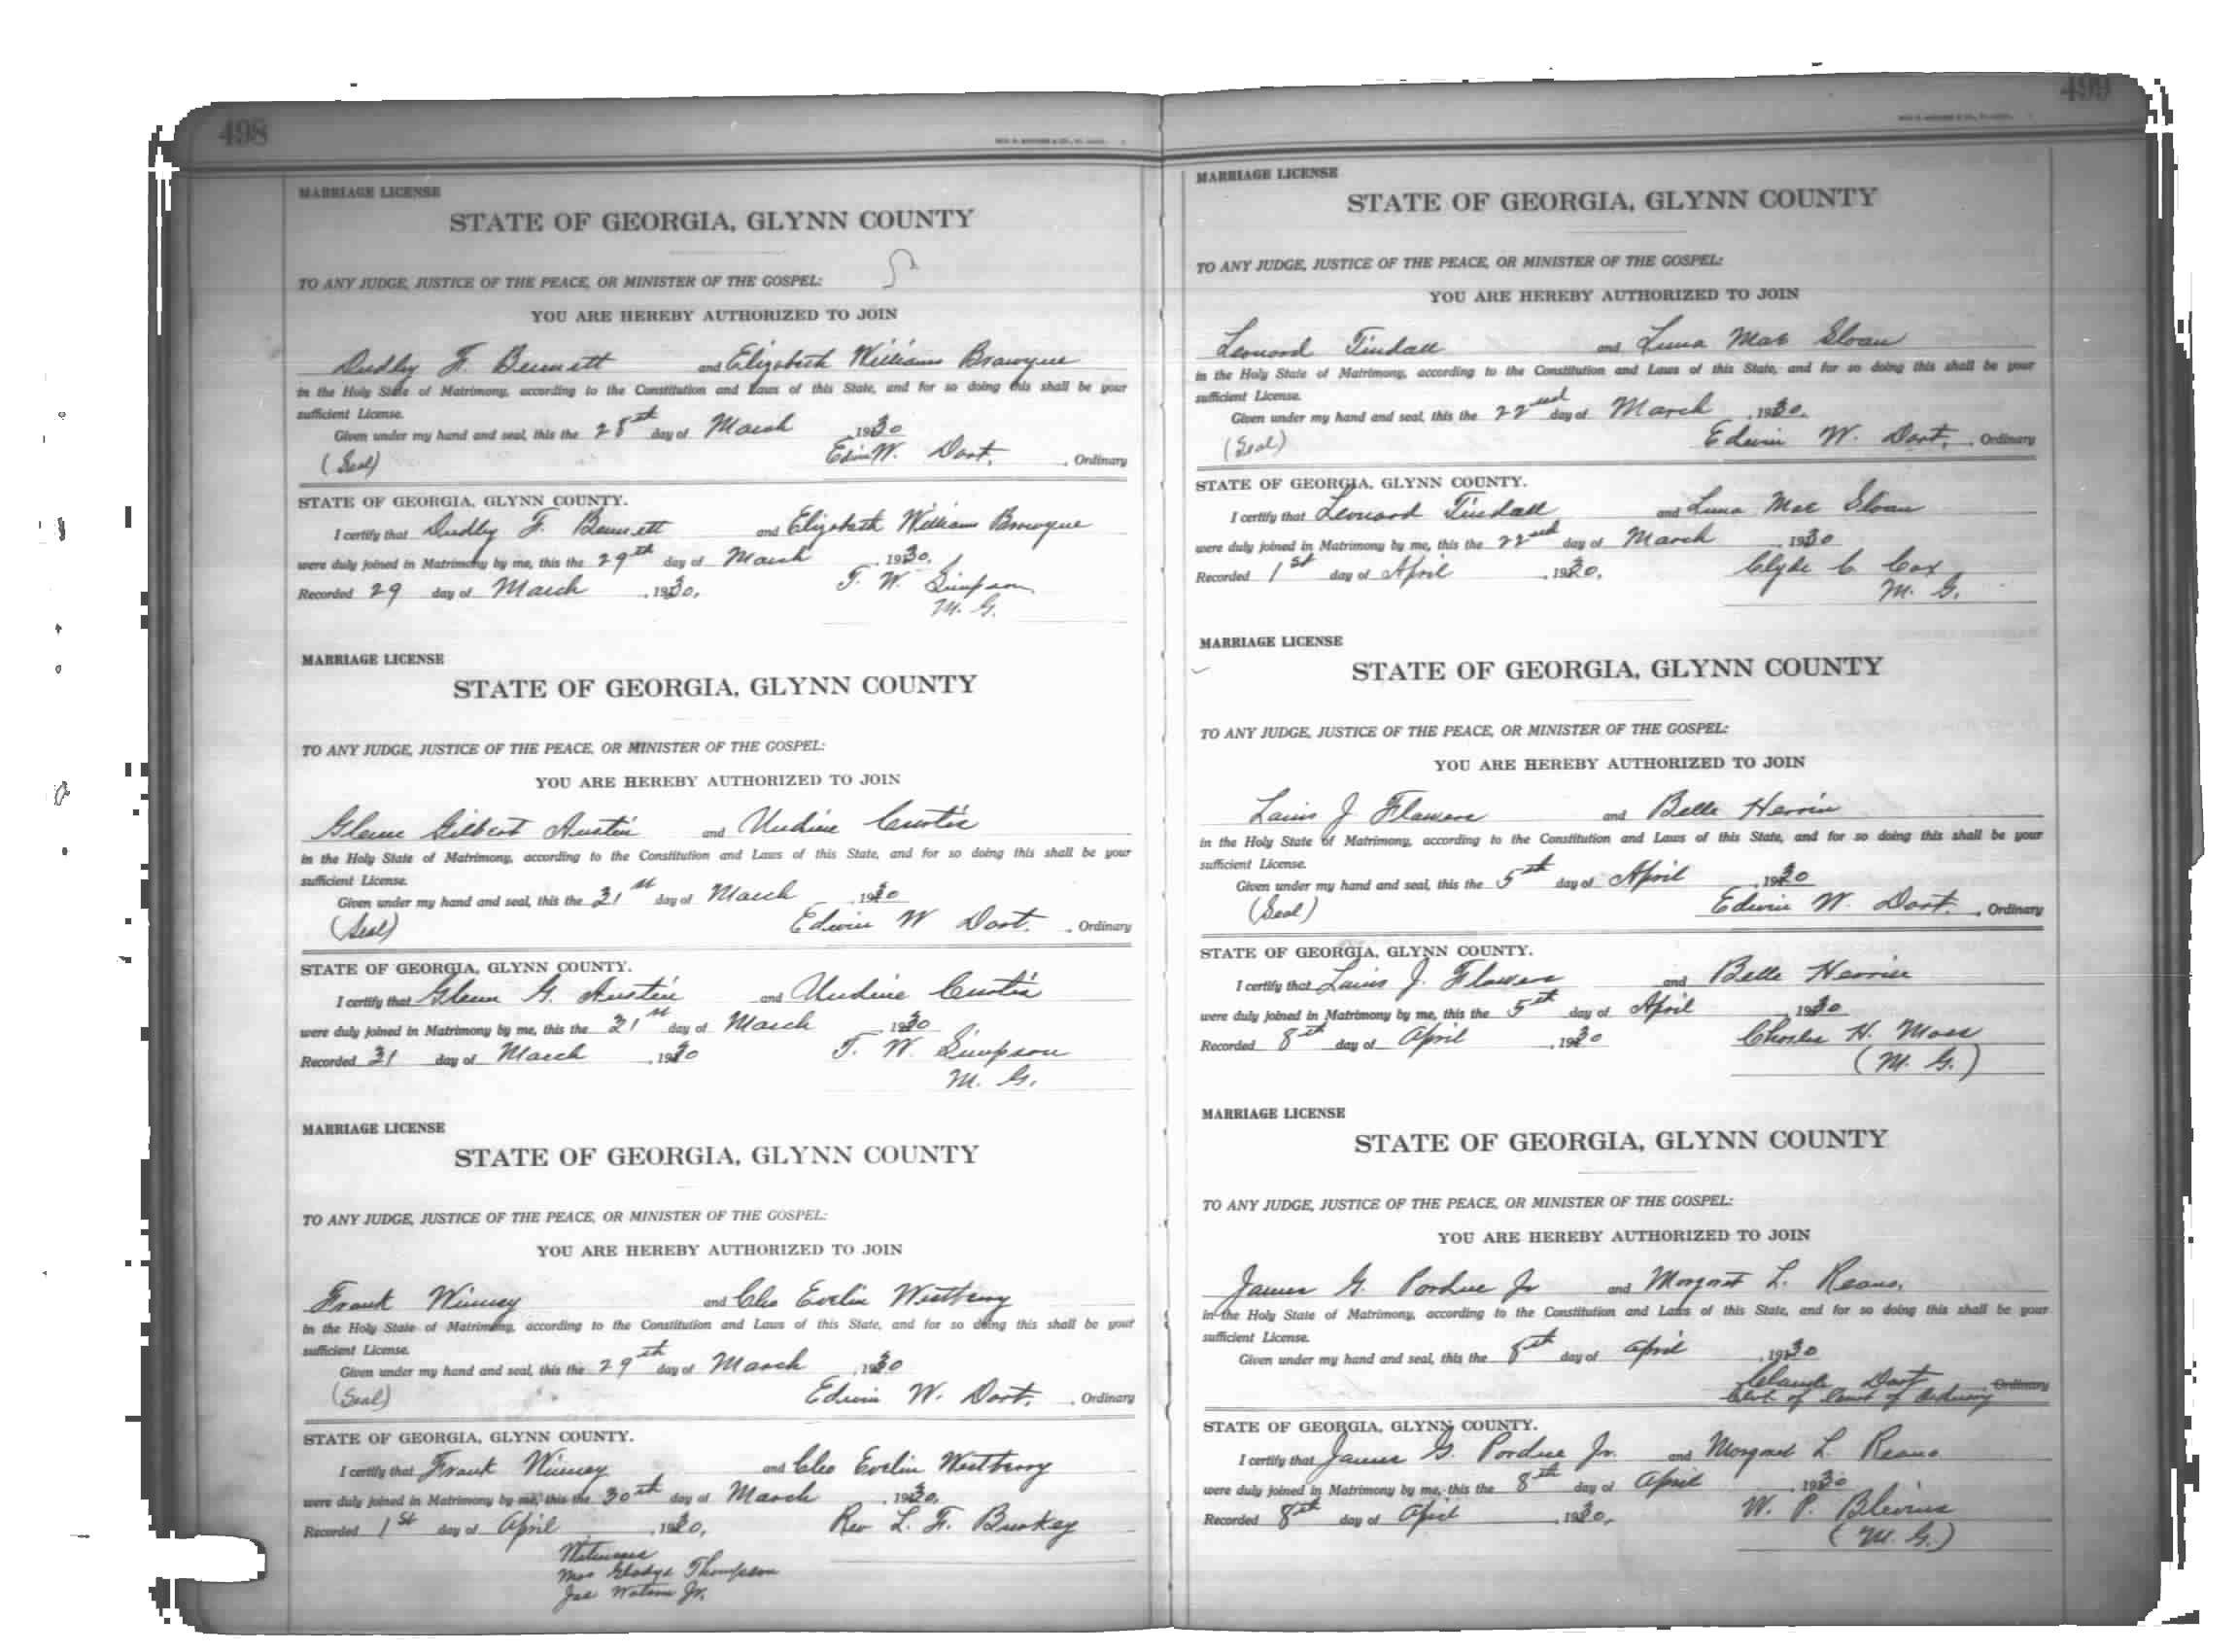 498
MARRIAGE LICENSE
STATE OF GEORGIA, GLYNN COUNTY
TO ANY JUDGE, JUSTICE OF THE PEACE, OR MINISTER OF THE GOSPEL:
YOU ARE HEREBY AUTHORIZED TO JOIN
Dudley F. Bennett and Elizabeth Williams Browyne
in the Holy State of Matrimony, according to the Constitution and Laws of this State, and for so doing this shall be your
sufficient License.
Given under my hand and seal, this the 28th day of March , 1930
(Seal) Edwin W. Dart, , Ordinary
STATE OF GEORGIA, GLYNN COUNTY.
I certify that Dudley F. Bennett and Elizabeth William Browyne
were duly joined in Matrimony by me, this the 29th day of March , 1930.
Recorded 29 day of March , 1930. T. W. Simpson
M. G.
MARRIAGE LICENSE
STATE OF GEORGIA, GLYNN COUNTY
TO ANY JUDGE, JUSTICE OF THE PEACE, OR MINISTER OF THE GOSPEL:
YOU ARE HEREBY AUTHORIZED TO JOIN
Glenn Gilbert Austin and Undine Curtis
in the Holy State of Matrimony, according to the Constitution and Laws of this State, and for so doing this shall be your
sufficient License.
Given under my hand and seal, this the 31st day of March , 1930
(Seal) Edwin W Dart. , Ordinary
STATE OF GEORGIA, GLYNN COUNTY.
I certify that Glenn G. Austin and Undine Curtis
were duly joined in Matrimony by me, this the 31st day of March , 1930
Recorded 31 day of March , 1930 T. W. Simpson
M. G.
MARRIAGE LICENSE
STATE OF GEORGIA, GLYNN COUNTY
TO ANY JUDGE, JUSTICE OF THE PEACE, OR MINISTER OF THE GOSPEL:
YOU ARE HEREBY AUTHORIZED TO JOIN
Frank Winney and Cleo Evelin Westberry
in the Holy State of Matrimony, according to the Constitution and Laws of this State, and for so doing this shall be your
sufficient License.
Given under my hand and seal, this the 29th day of March , 1930
(Seal) Edwin W. Dart, , Ordinary
STATE OF GEORGIA, GLYNN COUNTY.
I certify that Frank Winney and Cleo Evelin Westberry
were duly joined in Matrimony by me, this the 30th day of March , 1930.
Recorded 1st day of April , 1930, Rev L. F. Burkey
Witnesses
Mrs Gladys Thompson
Joe Watson Jr.
499
MARRIAGE LICENSE
STATE OF GEORGIA, GLYNN COUNTY
TO ANY JUDGE, JUSTICE OF THE PEACE, OR MINISTER OF THE GOSPEL:
YOU ARE HEREBY AUTHORIZED TO JOIN
Leonard Tindall and Luna Mae Sloan
in the Holy State of Matrimony, according to the Constitution and Laws of this State, and for so doing this shall be your
sufficient License.
Given under my hand and seal, this the 22nd day of March , 1930.
(Seal) Edwin W. Dart, , Ordinary
STATE OF GEORGIA, GLYNN COUNTY.
I certify that Leonard Tindall and Luna Mae Sloan
were duly joined in Matrimony by me, this the 22nd day of March , 1930
Recorded 1st day of April , 1930. Clyde C. Cox
M. G.
MARRIAGE LICENSE
STATE OF GEORGIA, GLYNN COUNTY
TO ANY JUDGE, JUSTICE OF THE PEACE, OR MINISTER OF THE GOSPEL:
YOU ARE HEREBY AUTHORIZED TO JOIN
Louis J Flowers and Belle Herrin
in the Holy State of Matrimony, according to the Constitution and Laws of this State, and for so doing this shall be your
sufficient License.
Given under my hand and seal, this the 5th day of April , 1930
(Seal) Edwin W. Dart. , Ordinary
STATE OF GEORGIA, GLYNN COUNTY.
I certify that Louis J. Flowers and Belle Herrin
were duly joined in Matrimony by me, this the 5th day of April , 1930
Recorded 8th day of April , 1930 Charles H. Moss
(M. G.)
MARRIAGE LICENSE
STATE OF GEORGIA, GLYNN COUNTY
TO ANY JUDGE, JUSTICE OF THE PEACE, OR MINISTER OF THE GOSPEL:
YOU ARE HEREBY AUTHORIZED TO JOIN
James G. Pordue Jr and Morgaret L. Reans.
in the Holy State of Matrimony, according to the Constitution and Laws of this State, and for so doing this shall be your
sufficient License.
Given under my hand and seal, this the 8th day of April , 1930
Claude Dart Ordinary
Clerk of Court of Ordinary
STATE OF GEORGIA, GLYNN COUNTY.
I certify that James G. Pordue Jr. and Morgaret L. Reans
were duly joined in Matrimony by me, this the 8th day of April , 1930
Recorded 8th day of April , 1930. W. P. Blevins
(M. G.)